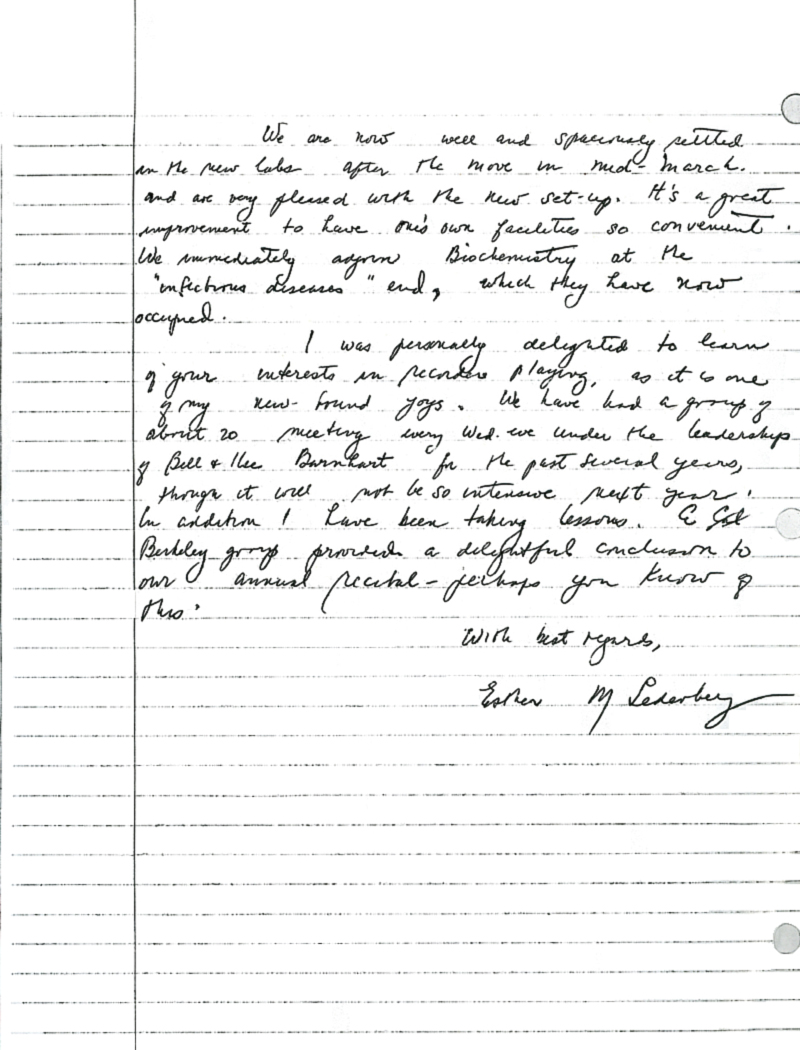 We are now well and spaciously settled
in the new labs after the move in mid-March.
and are very pleased with the new set-up. It's a great
improvement to have one's own facilities so convenient.
We immediately adjoin Biochemistry at the
"infectious diseases" end, which they have now
occupied.
I was personally delighted to learn
of your interests in recorder playing, as it is one
of my new-found joys. We have had a group of
about 20 meeting every Wed. eve under the leadership
of Bell & Barnhart for the past several years,
though it will not be so intensive next year.
In addition I have been taking lessons. A
Berkeley group provided a delightful conclusion to
our annual recital - perhaps you know of
this.
With best regards,
Esther M Lederberg